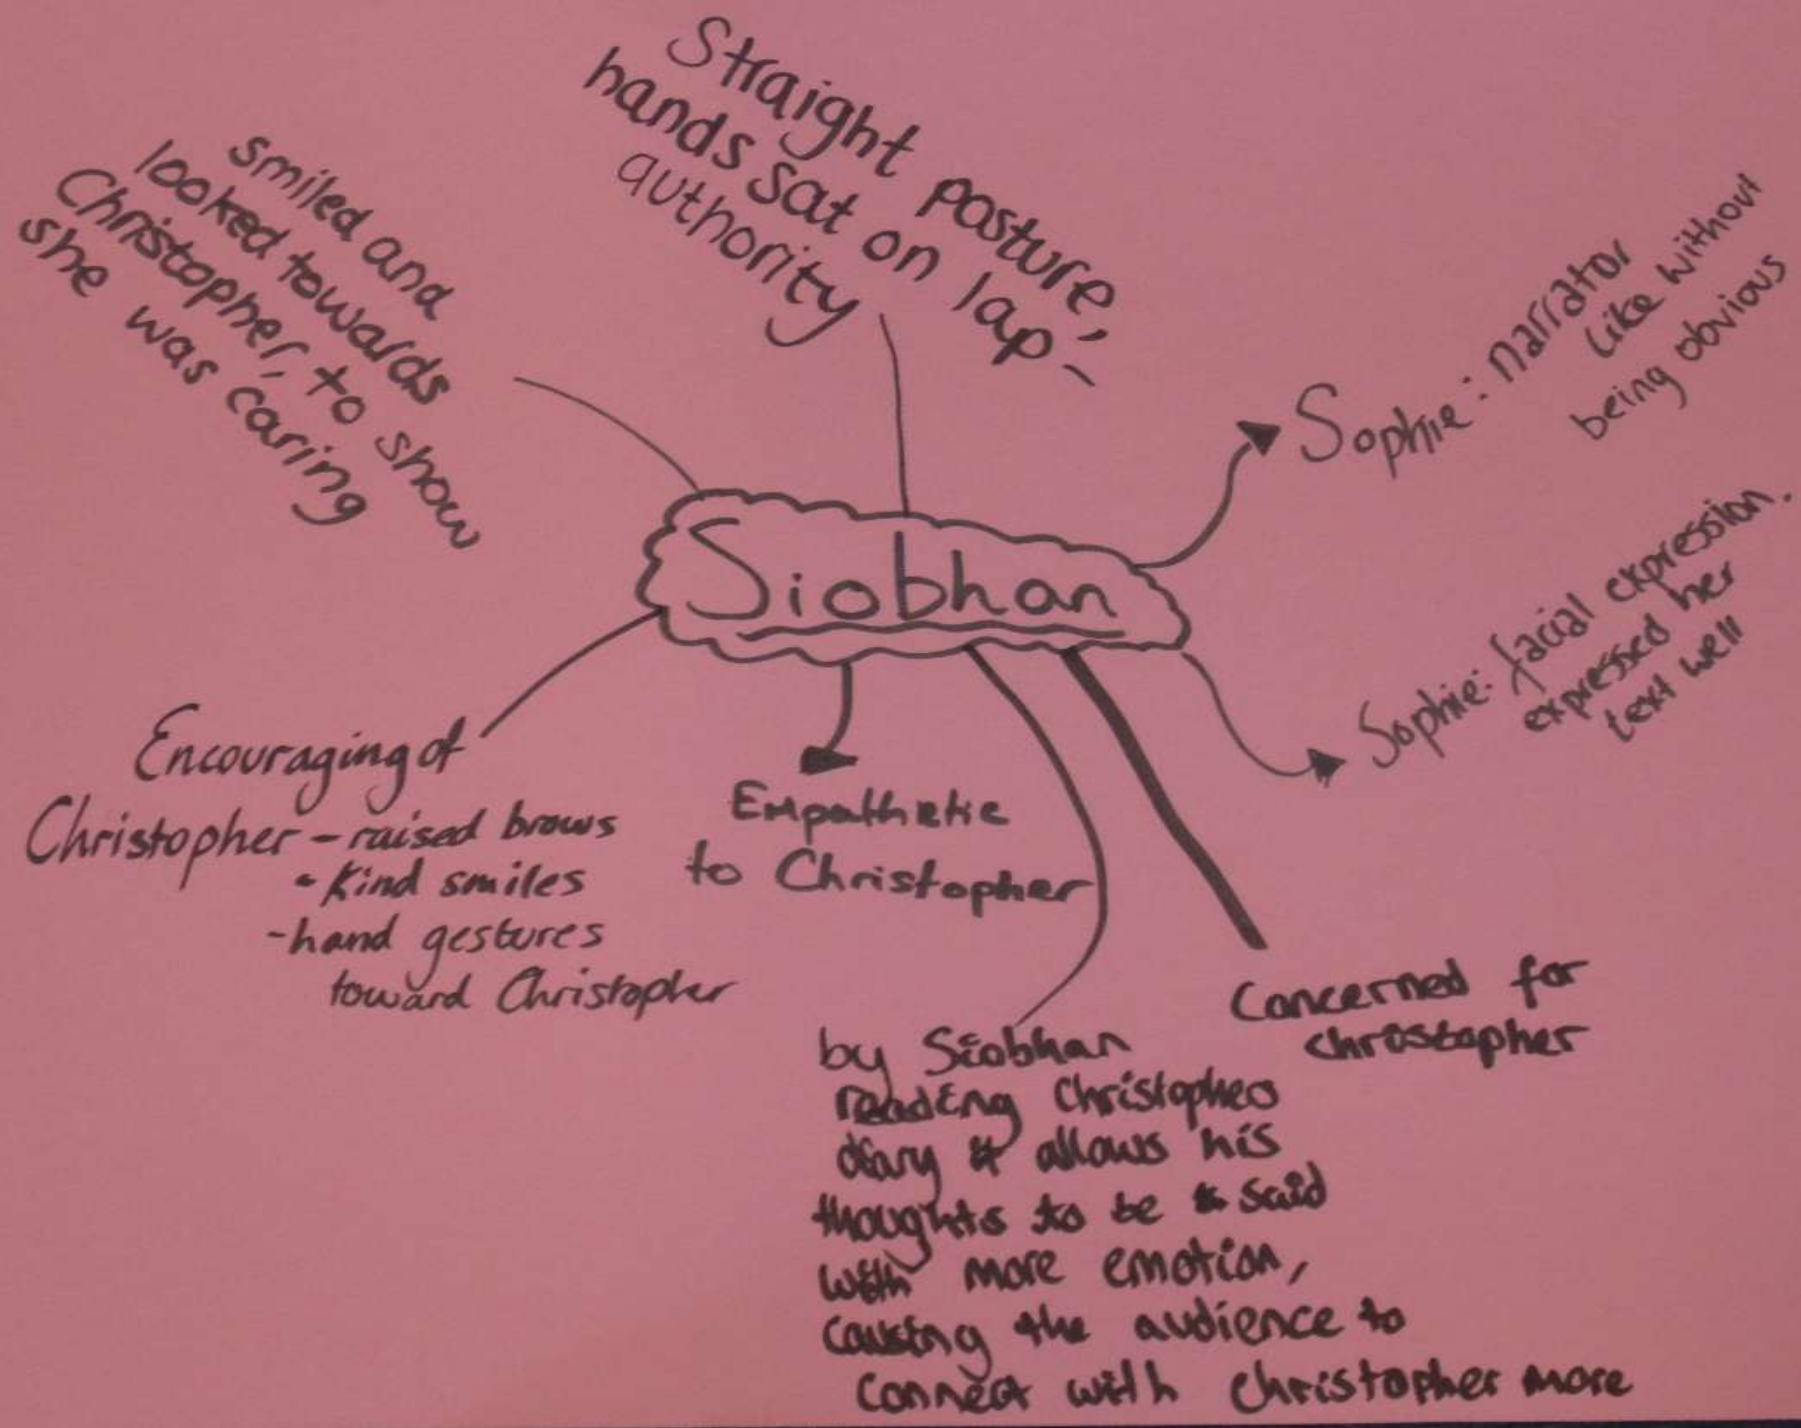 Straight posture,
hands sat on lap -
authority
smiled and
looked towards
Christopher, to show
she was caring
Sophie: narrator
like without
being obvious
Siobhan
Sophie: facial expression.
expressed her
text well
Encouraging of
Christopher - raised brows
- Kind smiles
- hand gestures
toward Christopher
Empathetic
to Christopher
Concerned for
christopher
by Siobhan
reading Christophers
diary it allows his
thoughts to be said
with more emotion,
causing the audience to
connect with Christopher more